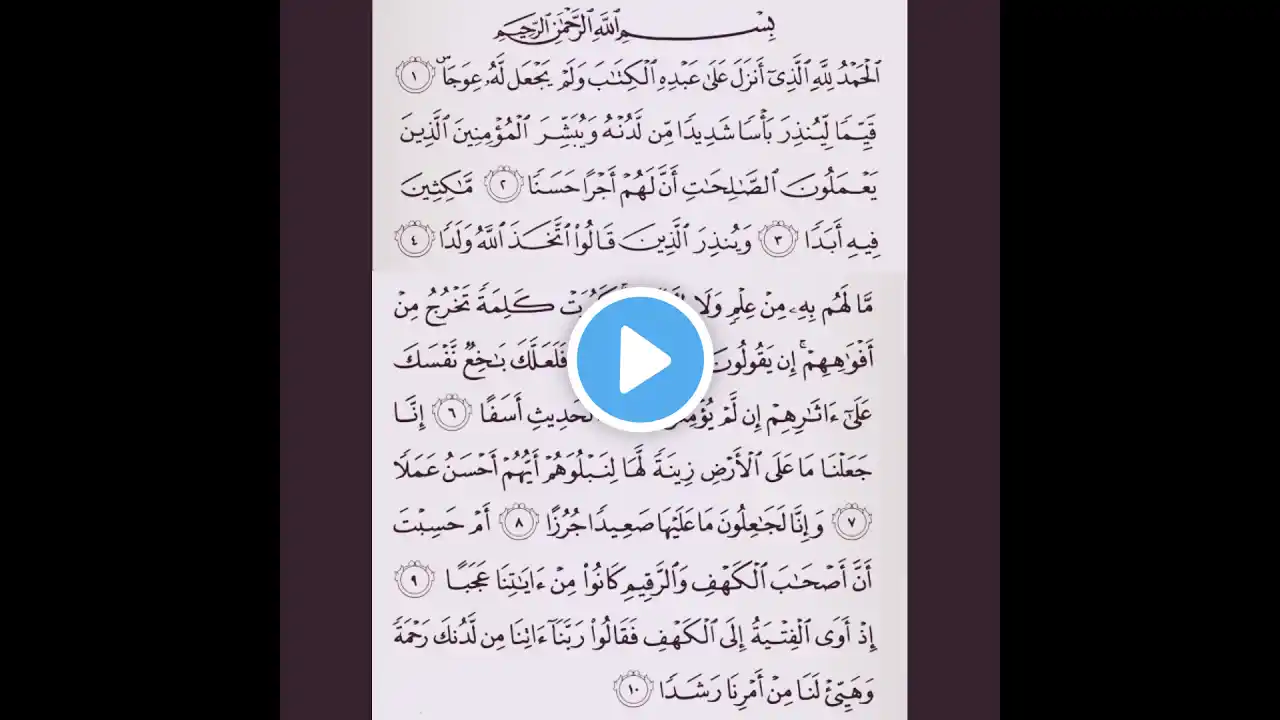 بِسْمِ ٱللَّهِ ٱلرَّحْمَٰنِ ٱلرَّحِيمِ
ٱلْحَمْدُ لِلَّهِ ٱلَّذِىٓ أَنزَلَ عَلَىٰ عَبْدِهِ ٱلْكِتَٰبَ وَلَمْ يَجْعَل لَّهُۥ عِوَجَاۜ ١
قَيِّمًا لِّيُنذِرَ بَأْسًا شَدِيدًا مِّن لَّدُنْهُ وَيُبَشِّرَ ٱلْمُؤْمِنِينَ ٱلَّذِينَ
يَعْمَلُونَ ٱلصَّٰلِحَٰتِ أَنَّ لَهُمْ أَجْرًا حَسَنًا ٢ مَّٰكِثِينَ
فِيهِ أَبَدًا ٣ وَيُنذِرَ ٱلَّذِينَ قَالُوا۟ ٱتَّخَذَ ٱللَّهُ وَلَدًا ٤
مَّا لَهُم بِهِۦ مِنْ عِلْمٍ وَلَا كَبُرَتْ كَلِمَةً تَخْرُجُ مِنْ
أَفْوَٰهِهِمْ ۚ إِن يَقُولُونَ فَلَعَلَّكَ بَٰخِعٌ نَّفْسَكَ
عَلَىٰٓ ءَاثَٰرِهِمْ إِن لَّمْ ٱلْحَدِيثِ أَسَفًا ٦ إِنَّا
جَعَلْنَا مَا عَلَى ٱلْأَرْضِ زِينَةً لَّهَا لِنَبْلُوَهُمْ أَيُّهُمْ أَحْسَنُ عَمَلًا
٧ وَإِنَّا لَجَٰعِلُونَ مَا عَلَيْهَا صَعِيدًا جُرُزًا ٨ أَمْ حَسِبْتَ
أَنَّ أَصْحَٰبَ ٱلْكَهْفِ وَٱلرَّقِيمِ كَانُوا۟ مِنْ ءَايَٰتِنَا عَجَبًا ٩
إِذْ أَوَى ٱلْفِتْيَةُ إِلَى ٱلْكَهْفِ فَقَالُوا۟ رَبَّنَآ ءَاتِنَا مِن لَّدُنكَ رَحْمَةً
وَهَيِّئْ لَنَا مِنْ أَمْرِنَا رَشَدًا ١٠